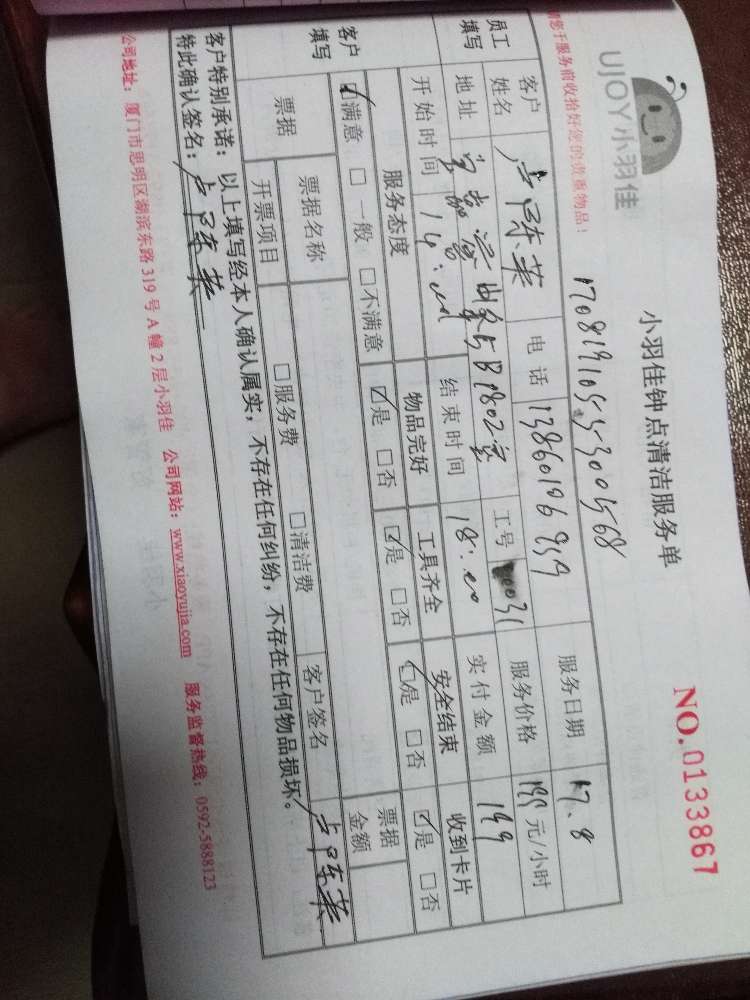 UJOY小羽佳
小羽佳钟点清洁服务单
NO.0133867
请您于服务前收拾好您的贵重物品！
员工填写
客户姓名
电话 13860196959
服务日期 17.8
工号
服务价格 199 元/小时
地址
实付金额 199
开始时间 14:00
结束时间 18:00
客户填写
服务态度
物品完好
工具齐全
安全结束
收到卡片
☑满意 □一般 □不满意
☑是 □否
☑是 □否
☑是 □否
☑是 □否
票据
票据名称
客户签名
票据金额
开票项目
□服务费
□清洁费
客户特别承诺：以上填写经本人确认属实，不存在任何纠纷，不存在任何物品损坏。
特此确认签名：
公司地址：厦门市思明区湖滨东路319号A幢2层小羽佳 公司网站：www.xiaoyujia.com 服务监督热线：0592-5888123